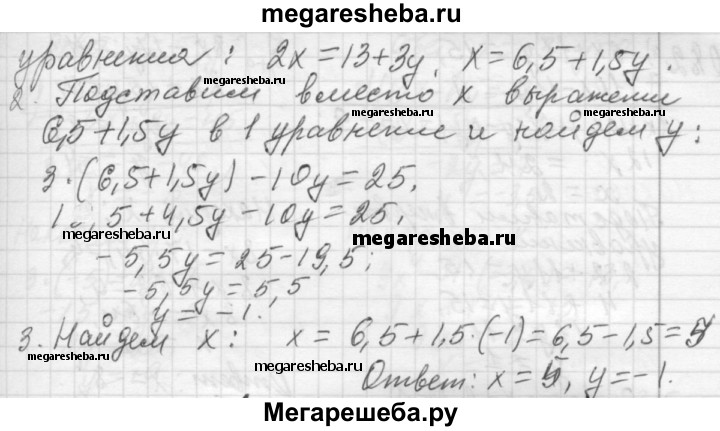 megaresheba.ru
уравнения: 2x=13+3y, x=6,5+1,5y.
megaresheba.ru
2. Подставим вместо x выражение
6,5+1,5y в 1 уравнение и найдем y:
3·(6,5+1,5y)-10y=25,
5+4,5y-10y=25,
megaresheba.ru
megaresheba.ru
-5,5y=25-19,5;
-5,5y=5,5
y=-1.
3. Найдем x: x=6,5+1,5·(-1)=6,5-1,5=5
megaresheba.ru
megaresheba.ru
Ответ: x=5, y=-1.
Мегарешеба.ру